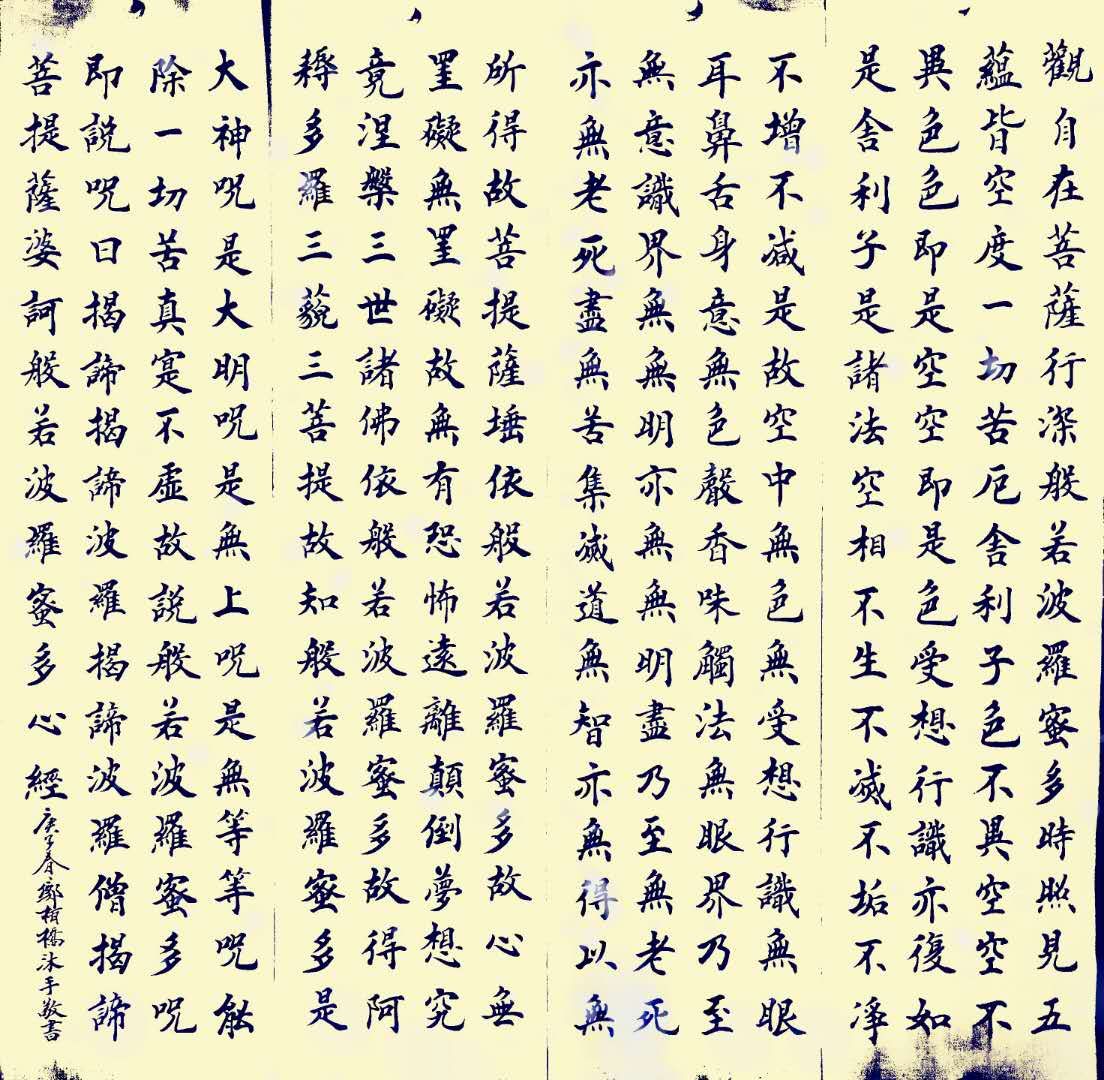 觀自在菩薩行深般若波羅蜜多時照見五
蘊皆空度一切苦厄舍利子色不異空空不
異色色即是空空即是色受想行識亦復如
是舍利子是諸法空相不生不滅不垢不淨
不增不減是故空中無色無受想行識無眼
耳鼻舌身意無色聲香味觸法無眼界乃至
無意識界無無明亦無無明盡乃至無老死
亦無老死盡無苦集滅道無智亦無得以無
所得故菩提薩埵依般若波羅蜜多故心無
罣礙無罣礙故無有恐怖遠離顛倒夢想究
竟涅槃三世諸佛依般若波羅蜜多故得阿
耨多羅三藐三菩提故知般若波羅蜜多是
大神呪是大明呪是無上呪是無等等呪能
除一切苦真寔不虛故說般若波羅蜜多呪
即說呪曰揭諦揭諦波羅揭諦波羅僧揭諦
菩提薩婆訶般若波羅蜜多心經
庚子春橋沐手敬書